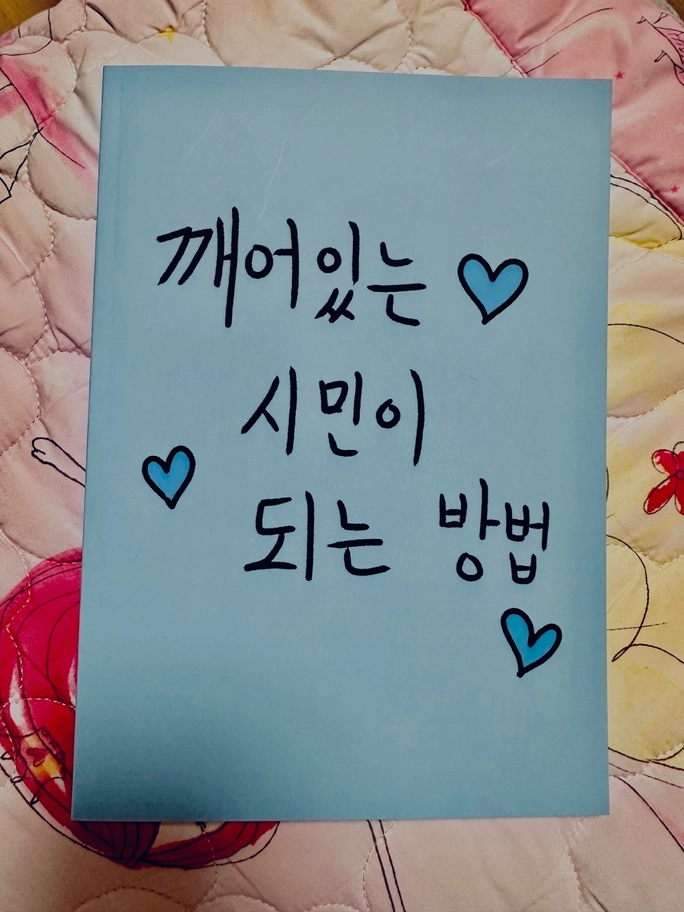 깨어있는
시민이
되는 방법